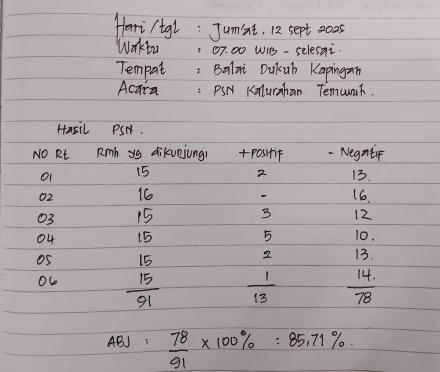 Hari /tgl : Jum'at, 12 sept 2025
Waktu : 07.00 WIB - selesai.
Tempat : Balai Dukuh Kapingan
Acara : PSN Kalurahan Temuwuh.
Hasil PSN.
NO Rt Rmh yg dikunjungi + positif - Negatif
01 15 2 13.
02 16 - 16.
03 15 3 12
04 15 5 10.
05 15 2 13.
06 15 1 14.
91 13 78
ABJ : 78/91 x 100% = 85,71 %.